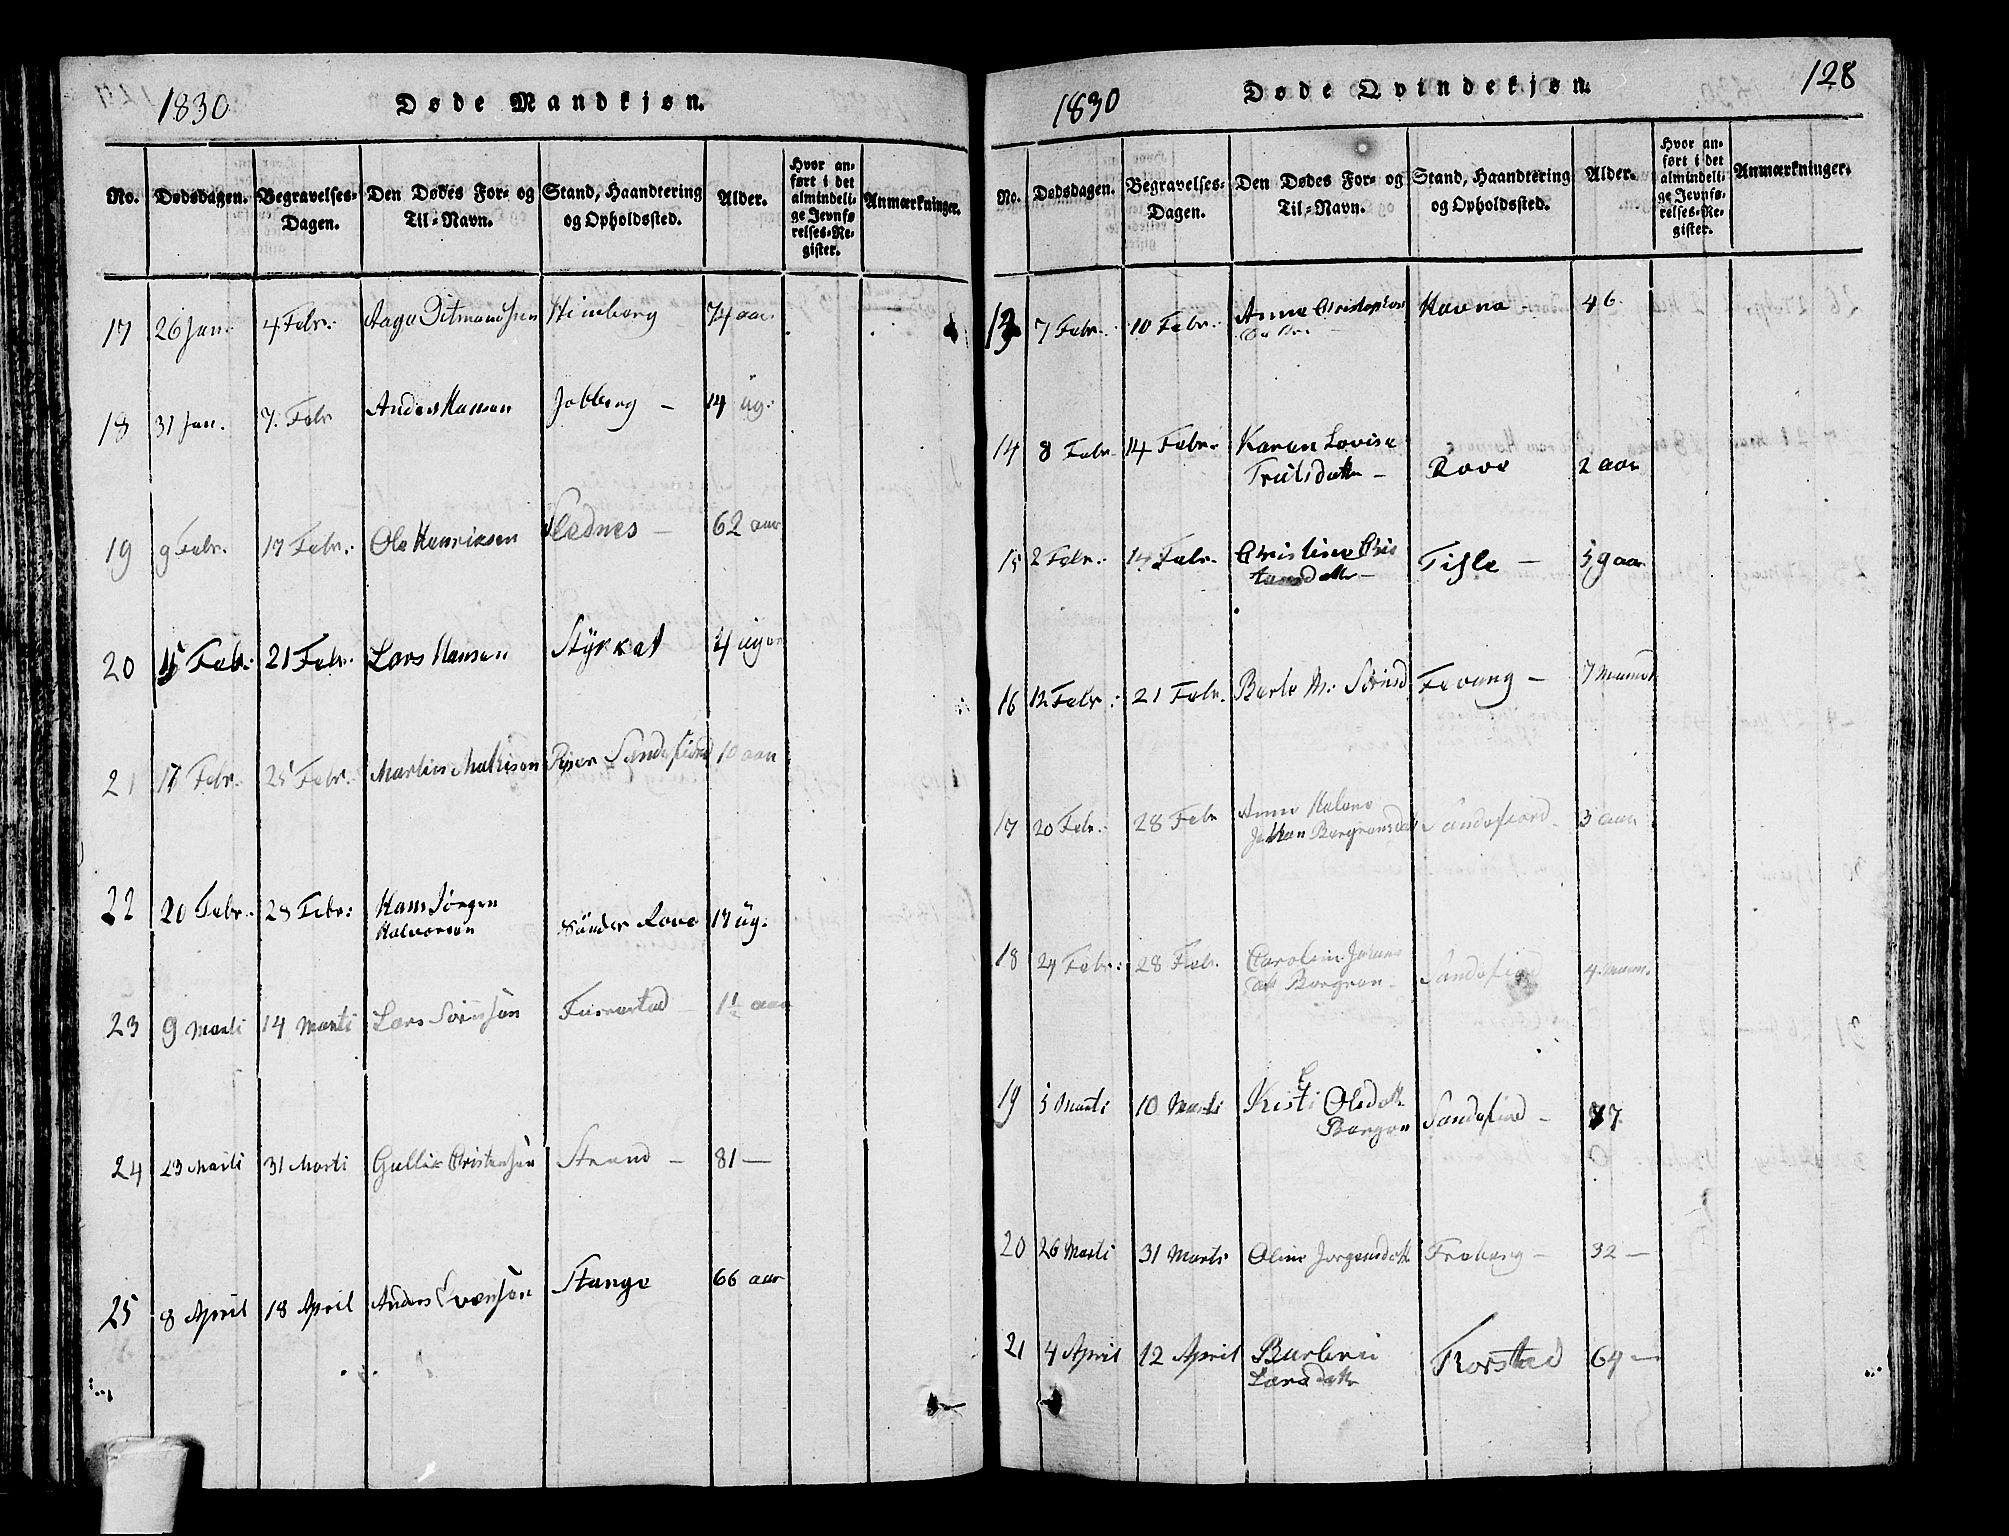 1830 Døde Mandkjøn.
No. Dødsdagen. Begravelses-Dagen. Den Dødes For- og Til-Navn. Stand, Haandtering og Opholdssted. Alder. Hvor anført i det almindelige Jevnførelses-Register. Anmærkninger.
17 26 Jan. 4 Febr: Aage Ditmandsen 74 aar
18 31 Jan. 7. Febr Anders Hansen 14 ug:
19 9 Febr. 17 Febr: Ole Henriksen 62 aar
20 15 Feb: 21 Febr: Lars Hansen 4 uger
21 17 Febr. 25 Febr. Martin Mathisen Sandefiord 10 aar
22 20 Febr. 28 Febr: Hans Jörgen
Halvorsen Sünder Rove 17 üg.
23 9 Marti 14 Marti Lars Sörensen 1½ aar
24 23 Marti 31 Marti Gullik Christensen Strand – 81 –
25 8 April 18 April Anders Evensen Stange 66 aar
1830 Døde Qvindekjøn. 128
No. Dødsdagen. Begravelses-Dagen. Den Dødes For- og Til-Navn. Stand, Haandtering og Opholdssted. Alder. Hvor anført i det almindelige Jevnførelses-Register. Anmærkninger.
13 7 Febr. 10 Febr: Anne Christophers
Datter – Havna – 46
14 8 Febr. 14 Febr. Karen Lovise
Trulsdatter – Rove 2 aar
15 2 Febr: 14 Febr. Christine Chris
tansdatter – 59 aar
16 12 Febr: 21 Febr. Berte M: Sörensd Fevang – 7 Maaned
17 20 Febr: 28 Febr Anne Halene
Bergransdatter Sandefiord – 3 aar
18 24 Febr: 28 Feb. Caroline Johans
dtt Bergran – Sandefiord 4 Maan.
19 5 Marti 10 Marti Kirsti Olsdatter
Bergan Sandefiord – 77.
20 26 Marti 31 Marti Oline Jorgensdatter Freberg – 32 –
21 4 April 12 April
Larsdatter Thorstad 64 –